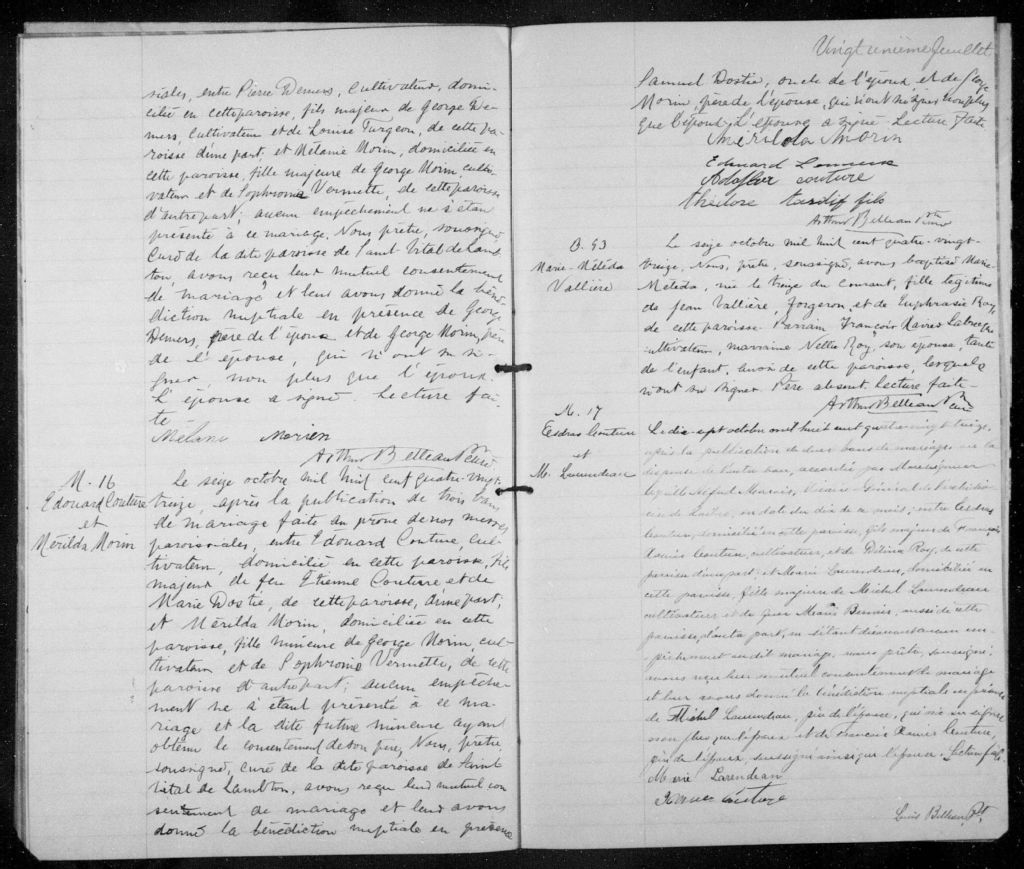 siales, entre Pierre Demers, Cultivateur, domi-
cilié en cette paroisse, fils majeur de George De-
mers Cultivateur et de Louise Turgeon, de cette pa-
roisse d'une part, et Mélanie Morin, domiciliée en
cette paroisse, fille majeure de George Morin, culti-
vateur et de Sophronie Vermette, de cette paroisse
d'autre part; aucun empêchement ne s'étant
présenté à ce mariage. Nous, prêtre, soussigné,
Curé de la dite paroisse de Saint Vital de Lamb-
ton, avons reçu leur mutuel consentement
de mariage et leur avons donné la béné-
diction nuptiale en présence de George
Demers, père de l'époux et de George Morin, père
de l'épouse, qui n'ont su si-
gner, non plus que l'époux.
L'épouse a signé. Lecture fai-
te
Mélanie Morien
Arthur Belleau Ptre
M. 16
Edouard Couture
et
Mérilda Morin
Le seize octobre mil huit cent quatre-vingt-
treize, après la publication de trois bans
de mariage faite au prône de nos messes
paroissiales, entre Edouard Couture, cul-
tivateur, domicilié en cette paroisse, fils
majeur de feu Etienne Couture et de
Marie Dostie, de cette paroisse, d'une part;
et Mérilda Morin, domiciliée en cette
paroisse, fille mineure de George Morin, cul-
tivateur et de Sophronie Vermette, de cette
paroisse d'autre part; aucun empêche-
ment ne s'étant présenté à ce ma-
riage et la dite future mineure ayant
obtenu le consentement de son père, Nous, prêtre
soussigné, curé de la dite paroisse de Saint
Vital de Lambton, avons reçu leur mutuel con
sentement de mariage et leur avons
donné la bénédiction nuptiale en présence
Vingt unième feuillet
Samuel Dostie, oncle de l'époux et de George
Morin, père de l'épouse, qui n'ont su signer non plus
que l'époux, L'épouse a signé. Lecture faite
Mérilda Morin
Edouard
Couture
Théodore Tardif fils
Arthur Belleau Ptre
B. 53
Marie-Méléda
Vallière
Le seize octobre mil huit cent quatre-vingt-
treize, Nous, prêtre, soussigné, avons baptisé Marie
Méléda, née le treize du courant, fille légitime
de Jean Vallière, forgeron, et de Euphrasie Roy
de cette paroisse. Parrain François Xavier Labrecque
cultivateur, marraine Nellie Roy, son épouse, tante
de l'enfant, aussi de cette paroisse, lesquels
n'ont su signer. Père absent. Lecture faite-
Arthur Belleau Ptre
M. 17
Esdras Couture
et
M. Laurendeau
Le dix-sept octobre mil huit cent quatre-vingt-treize,
après la publication de deux bans de mariage, vu la
dispense de l'autre ban, accordée par Monseigneur
Vicaire-Général
en date du dix de ce mois, entre Esdras
Couture, domicilié en cette paroisse, fils majeur de François
Xavier Couture, cultivateur, et de Délina Roy, de cette
paroisse d'une part; et Marie Laurendeau, domiciliée en
cette paroisse, fille majeure de Michel Laurendeau
cultivateur et de feue Marie aussi de cette
paroisse, d'autre part, ne s'étant découvert aucun em-
pêchement au dit mariage, nous, prêtre, soussigné,
avons reçu leur mutuel consentement de mariage
et leur avons donné la bénédiction nuptiale en présence
de Michel Laurendeau, père de l'épouse, qui n'a su signer
non plus que l'époux et de François Xavier Couture,
père de l'époux, soussigné ainsi que l'épouse. Lecture faite
Marie Larendeau
Couture
Louis Belleau, Ptre